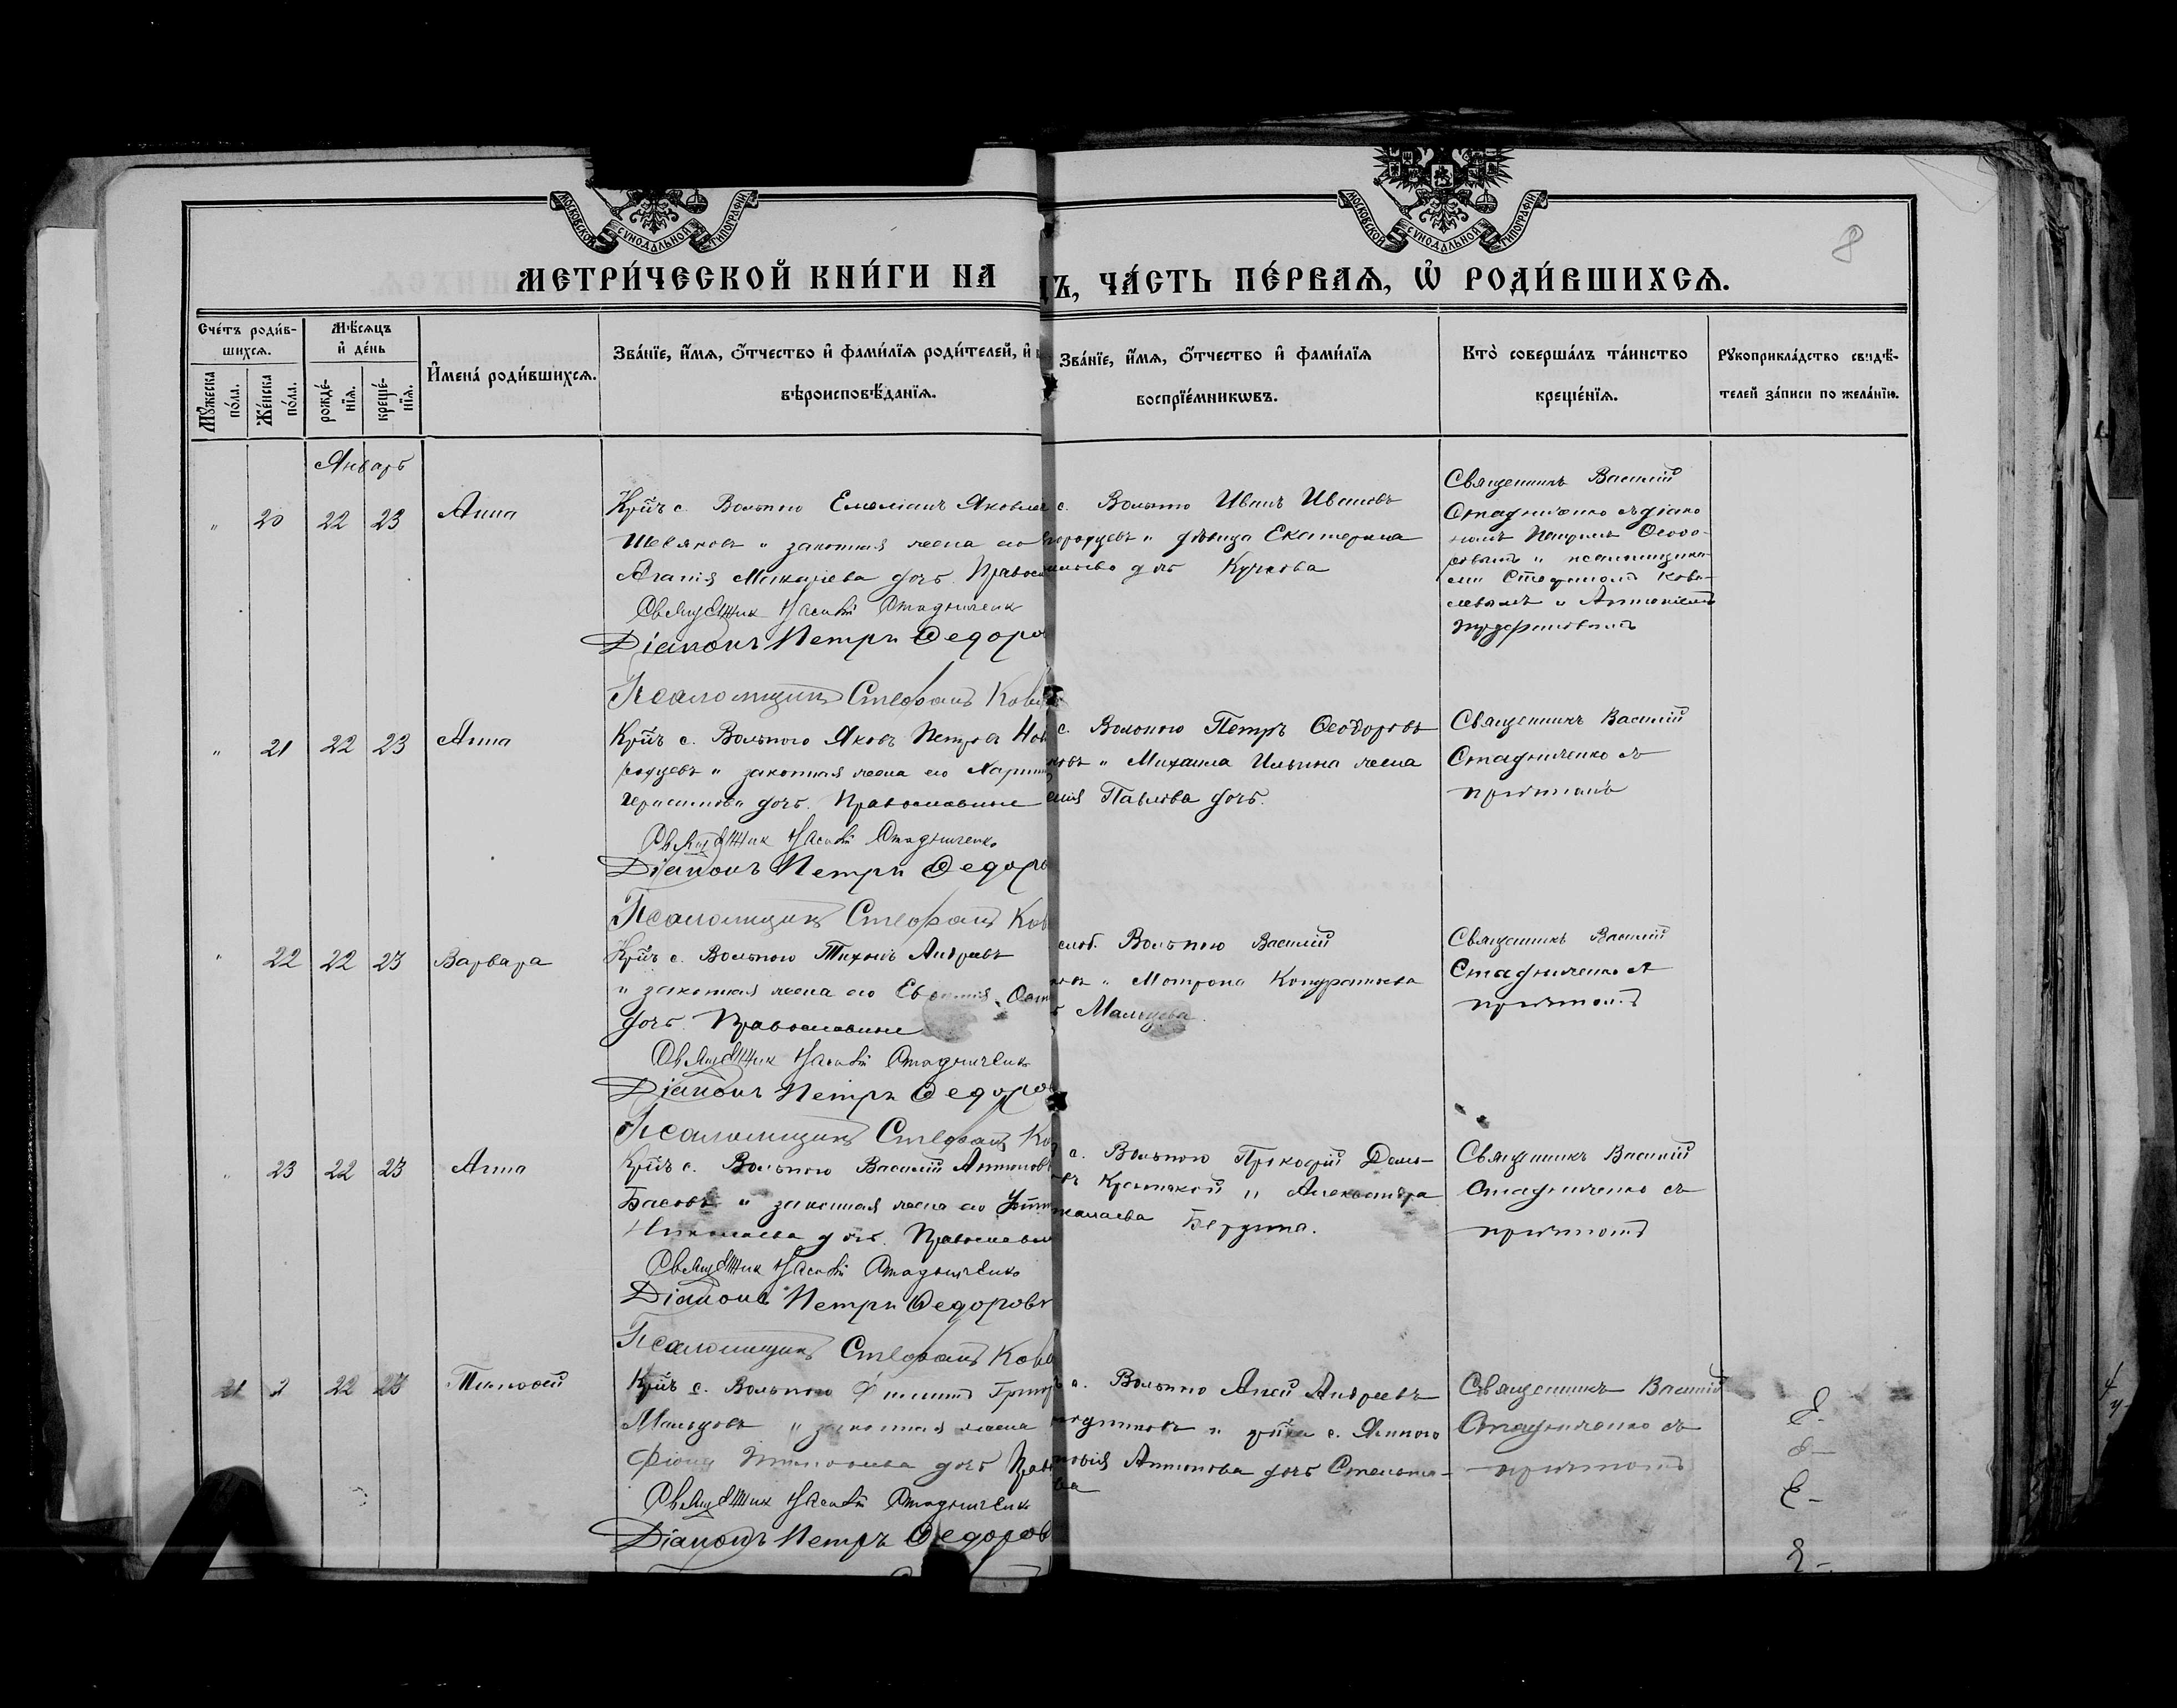 МОСКОВСКОЙ СУНОДАЛЬНОЙ ТИПОГРАФІИ
МОСКОВСКОЙ СУНОДАЛЬНОЙ ТИПОГРАФІИ
8
МЕТРИ́ЧЕСКОЙ КНИ́ГИ НА
Ъ, ЧА́СТЬ ПЕ́РВАѦ, Ѡ҆ РОДИ́ВШИХСѦ.
Сче́тъ роди́в-
шихсѧ.
Мѣ́сѧцъ
и҆ де́нь
Мꙋ́жеска
по́ла.
Же́нска
по́ла.
рожде́-
нїѧ.
креще́-
нїѧ.
И҆мена̀ роди́вшихсѧ.
Зва́нїе, и҆́мѧ, ѻ҆́тчество и҆ фами́лїѧ роди́телей, и҆
вѣроисповѣ́данїѧ.
Зва́нїе, и҆́мѧ, ѻ҆́тчество и҆ фами́лїѧ
воспрїе́мникѡвъ.
Кто̀ соверша́лъ та́инство
креще́нїѧ.
Рꙋкоприкла́дство свидѣ́-
телей за́писи по жела́нїю.
Январь
" 20 22 23 Анна
Кр-нъ с. Вольного Емеліанъ Яковлев
Шевляковъ и законная жена его
Агапія дочь. Правосл
Священник Васілій Стадниченко
Діаконъ Петръ Федоро
Псаломщикъ Стефанъ Ков
с. Вольного Иванъ Ивановъ
городцевъ и дѣвица Екатерина
дочь
Священникъ Василій
Стадниченко съ діако
номъ Петромъ Ѳеодо-
ровымъ и псаломщика-
ми Стефаномъ Кова-
левымъ и Антоніемъ
" 21 22 23 Анна
Кр-нъ с. Вольного Яковъ Петровъ Нов
родцевъ и законная жена его Харит
Герасимова дочь. Православные
Священник Васілій Стадниченко
Діаконъ Петръ Федоро
Псаломщикъ Стефанъ Ков
с. Вольного Петръ Ѳеодоровъ
ковъ и Михаила Ильина жена
Павлова дочь.
Священникъ Василій
Стадниченко съ
причтомъ
" 22 22 23 Варвара
Кр-нъ с. Вольного Тихонъ Андреевъ
и законная жена его Евфимія
дочь. Православные
Священник Васілій Стадниченко
Діаконъ Петръ Федоров
Псаломщикъ Стефанъ Ко
слоб. Вольного Василій
ковъ и Матрона Кондратьева
Мальцева.
Священникъ Василій
Стадниченко съ
причтомъ
" 23 22 23 Анна
Кр-нъ с. Вольного Василій Антоновъ
Басовъ и законная жена его
Николаева дочь. Православн
Священник Васілій Стадниченко
Діаконъ Петръ Федоровъ
Псаломщикъ Стефанъ Кова
с. Вольного Прокофій
и Александра
Николаева
Священникъ Василій
Стадниченко съ
причтомъ
21 " 22 23 Тимоѳей
Кр-нъ с. Вольного Филиппъ Григор
Мальцовъ и законная жена
дочь Прав
Священник Васілій Стадниченко
Діаконъ Петръ Федоров
с. Вольного Андреевъ
Антонова дочь
ва
Священникъ Василій
Стадниченко съ
причтомъ